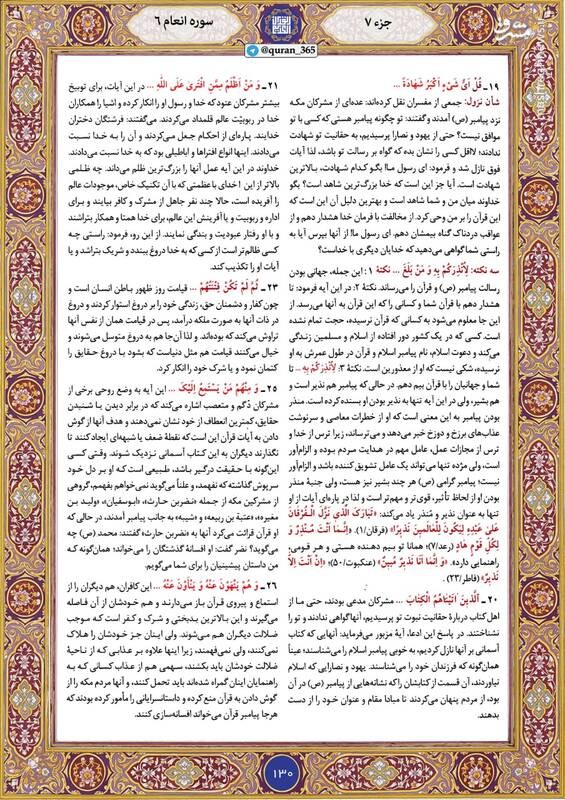 جزء ۷
سوره انعام ۶
@quran_365
۱۹ـ قُلْ أَیُّ شَیْءٍ أَکْبَرُ شَهَادَةً ...
شأن نزول: جمعی از مفسران نقل کرده‌اند: عده‌ای از مشرکان مکه
نزد پیامبر (ص) آمدند و گفتند: تو چگونه پیامبر هستی که کسی با تو
موافق نیست؟ حتی از یهود و نصارا پرسیدیم، به حقانیت تو شهادت
ندادند؛ لااقل کسی را نشان بده که گواه بر رسالت تو باشد، لذا آیات
فوق نازل شد و فرمود: ای رسول ما! بگو کدام شهادت، بالاترین
شهادت است. آیا جز این است که خدا بزرگ‌ترین شاهد است؟ بگو
خداوند میان من و شما شاهد است و بهترین دلیل آن این است که
این قرآن را بر من وحی کرد. از مخالفت با فرمان خدا هشدار دهم و از
عواقب دردناک گناه بیمشان دهم. ای رسول ما! از آنها بپرس آیا به
راستی شما گواهی می‌دهید که خدایان دیگری با خداست؟
سه نکته: لِأُنْذِرَکُمْ بِهِ وَ مَنْ بَلَغَ ... نکتهٔ ۱: این جمله، جهانی بودن
رسالت پیامبر (ص) و قرآن را می‌رساند. نکتهٔ ۲: در این آیه فرمود: تا
هشدار دهم با قرآن شما و کسانی را که این قرآن به آنها می‌رسد. از
این جا معلوم می‌شود به کسانی که قرآن نرسیده، حجت تمام نشده
است. کسی که در یک کشور دور افتاده از اسلام و مسلمین زندگی
می‌کند و دعوت اسلام، نام پیامبر اسلام و قرآن در طول عمرش به او
نرسیده، شکی نیست که او از معذورین است. نکتهٔ ۳: لِأُنْذِرَکُمْ بِهِ ... تا
شما و جهانیان را با قرآن بیم دهم. در حالی که پیامبر هم نذیر است و
هم بشیر، ولی در این آیه تنها به نذیر بودن او بسنده کرده است. منذر
بودن پیامبر به این معنی است که او از خطرات معاصی و سرنوشت
عذاب‌های برزخ و دوزخ خبر می‌دهد و می‌ترساند، زیرا ترس از خدا و
ترس از مجازات عمل، عامل مهم در هدایت مردم بوده و الزام‌آور
است، ولی مژده تنها می‌تواند یک عامل تشویق کننده باشد و الزام‌آور
نیست؛ پیامبر گرامی (ص) هر چند بشیر نیز هست، ولی جنبهٔ منذر
بودن او از لحاظ تأثیر، قوی‌تر و مهم‌تر است و لذا در پاره‌ای آیات از او
تنها به عنوان نذیر و مُنذر یاد می‌کند: «تَبَارَکَ الَّذِی نَزَّلَ الْفُرْقَانَ
عَلَی عَبْدِهِ لِیَکُونَ لِلْعَالَمِینَ نَذِیرًا» (فرقان/۱). «إِنَّمَا أَنْتَ مُنْذِرٌ وَ
لِکُلِّ قَوْمٍ هَادٍ (رعد/۷)» همانا تو بیم دهنده هستی و هر قومی
راهنمایی دارد». «وَ إِنَّمَا أَنَا نَذِیرٌ مُبِینٌ» (عنکبوت/۵۰) «إِنْ أَنْتَ إِلَّا
نَذِیرٌ» (فاطر/۲۳).
۲۰ـ الَّذِینَ آتَیْنَاهُمُ الْکِتَابَ ... مشرکان مدعی بودند، حتی ما از
اهل کتاب دربارهٔ حقانیت نبوت تو پرسیدیم، آنها گواهی ندادند و تو را
نشناختند. در پاسخ این ادعا، آیهٔ مزبور می‌فرماید: آنهایی که کتاب
آسمانی بر آنها نازل کردیم، به خوبی پیامبر اسلام را می‌شناسند؛ عیناً
همان‌گونه که فرزندان خود را می‌شناسند. یهود و نصارایی که اسلام
نیاوردند، آن قسمت از کتابشان را که نشانه‌هایی از پیامبر (ص) در آن
بود، از مردم پنهان می‌کردند تا مبادا مقام و عنوان خود را از دست
بدهند.
۲۱ـ وَ مَنْ أَظْلَمُ مِمَّنِ افْتَرَی عَلَی اللَّهِ ... در این آیات، برای توبیخ
بیشتر مشرکان عنود که خدا و رسول او را انکار کرده و اشیا را همکاران
خدا در ربوبیّت عالم قلمداد می‌کردند. می‌گفتند: فرشتگان دختران
خدایند. پاره‌ای از احکام جعل می‌کردند و آن را به خدا نسبت
می‌دادند. اینها انواع افتراها و اباطیلی بود که به خدا نسبت می‌دادند.
خداوند در این آیه عمل آنها را بزرگ‌ترین ظلم می‌داند. چه ظلمی
بالاتر از این! خدای با عظمتی که با آن تکنیک خاص، موجودات عالم
را آفریده است، حالا چند نفر جاهل از مشرک و کافر بیایند و برای
اداره و ربوبیت و یا آفرینش این عالم، برای خدا همتا و همکار بتراشند
و با او رفتار عبودیت و بندگی نمایند. از این رو، فرمود: راستی چه
کسی ظالم‌تر است از کسی که به خدا دروغ ببندد و شریک بتراشد و یا
آیات او را تکذیب کند.
۲۳ـ ثُمَّ لَمْ تَکُنْ فِتْنَتُهُمْ ... قیامت روز ظهور باطن انسان است و
چون کفار و دشمنان حق، زندگی خود را بر دروغ استوار کردند و دروغ
در ذات آنها به صورت ملکه درآمد، پس در قیامت همان از نفس آنها
تراوش می‌کند که بوده‌اند. و لذا آن‌جا هم به دروغ متوسل می‌شوند و
خیال می‌کنند قیامت هم مثل دنیاست که بشود با دروغ حقایق را
کتمان نمود و یا شرک خود را انکار کرد.
۲۵ـ وَ مِنْهُمْ مَنْ یَسْتَمِعُ إِلَیْکَ ... این آیه به وضع روحی برخی از
مشرکان دُگم و متعصب اشاره می‌کند که در برابر دیدن یا شنیدن
حقایق، کمترین انعطاف از خود نشان نمی‌دهند و هدف آنها از گوش
دادن به آیات قرآن این است که نقطهٔ ضعف یا شبهه‌ای ایجاد کنند تا
نگذارند دیگران به این کتاب آسمانی نزدیک شوند. وقتی کسی
این‌گونه با حقیقت درگیر باشد، طبیعی است که او بر دل خود
سرپوش گذاشته که نفهمد، و علناً می‌گوید نمی‌خواهم بفهمم، گروهی
از مشرکین مکه از جمله «نضربن حارث»، «ابوسفیان»، «ولید بن
مغیره»، «عتبة بن ربیعه» و «شیبه» به جانب پیامبر آمدند، در حالی که
او قرآن قرائت می‌کرد آنها به «نضربن حارث» گفتند: محمد (ص) چه
می‌گوید؟ نضر گفت: او افسانهٔ گذشتگان را می‌خواند؛ همان‌گونه که
من داستان پیشینیان را برای شما می‌گویم.
۲۶ـ وَ هُمْ یَنْهَوْنَ عَنْهُ وَ یَنْأَوْنَ عَنْهُ ... این کافران، هم دیگران را از
استماع و پیروی قرآن باز می‌دارند و هم خودشان از آن فاصله
می‌گیرند و این بالاترین بدبختی و شرک و کفر است که موجب
ضلالت دیگران هم می‌شوند. ولی اینان جز خودشان را هلاک
نمی‌کنند، ولی نمی‌فهمند، زیرا اینها علاوه بر عذابی که از ناحیهٔ
ضلالت خودشان باید بکشند، سهمی هم از عذاب کسانی که به
راهنمایان اینان گمراه شده‌اند باید تحمل کنند، و آنها مردم مکه را از
گوش دادن به قرآن منع کرده و داستانسرایانی را مأمور کرده بودند که
هرجا پیامبر قرآن می‌خواند افسانه‌سازی کنند.
۱۳۰